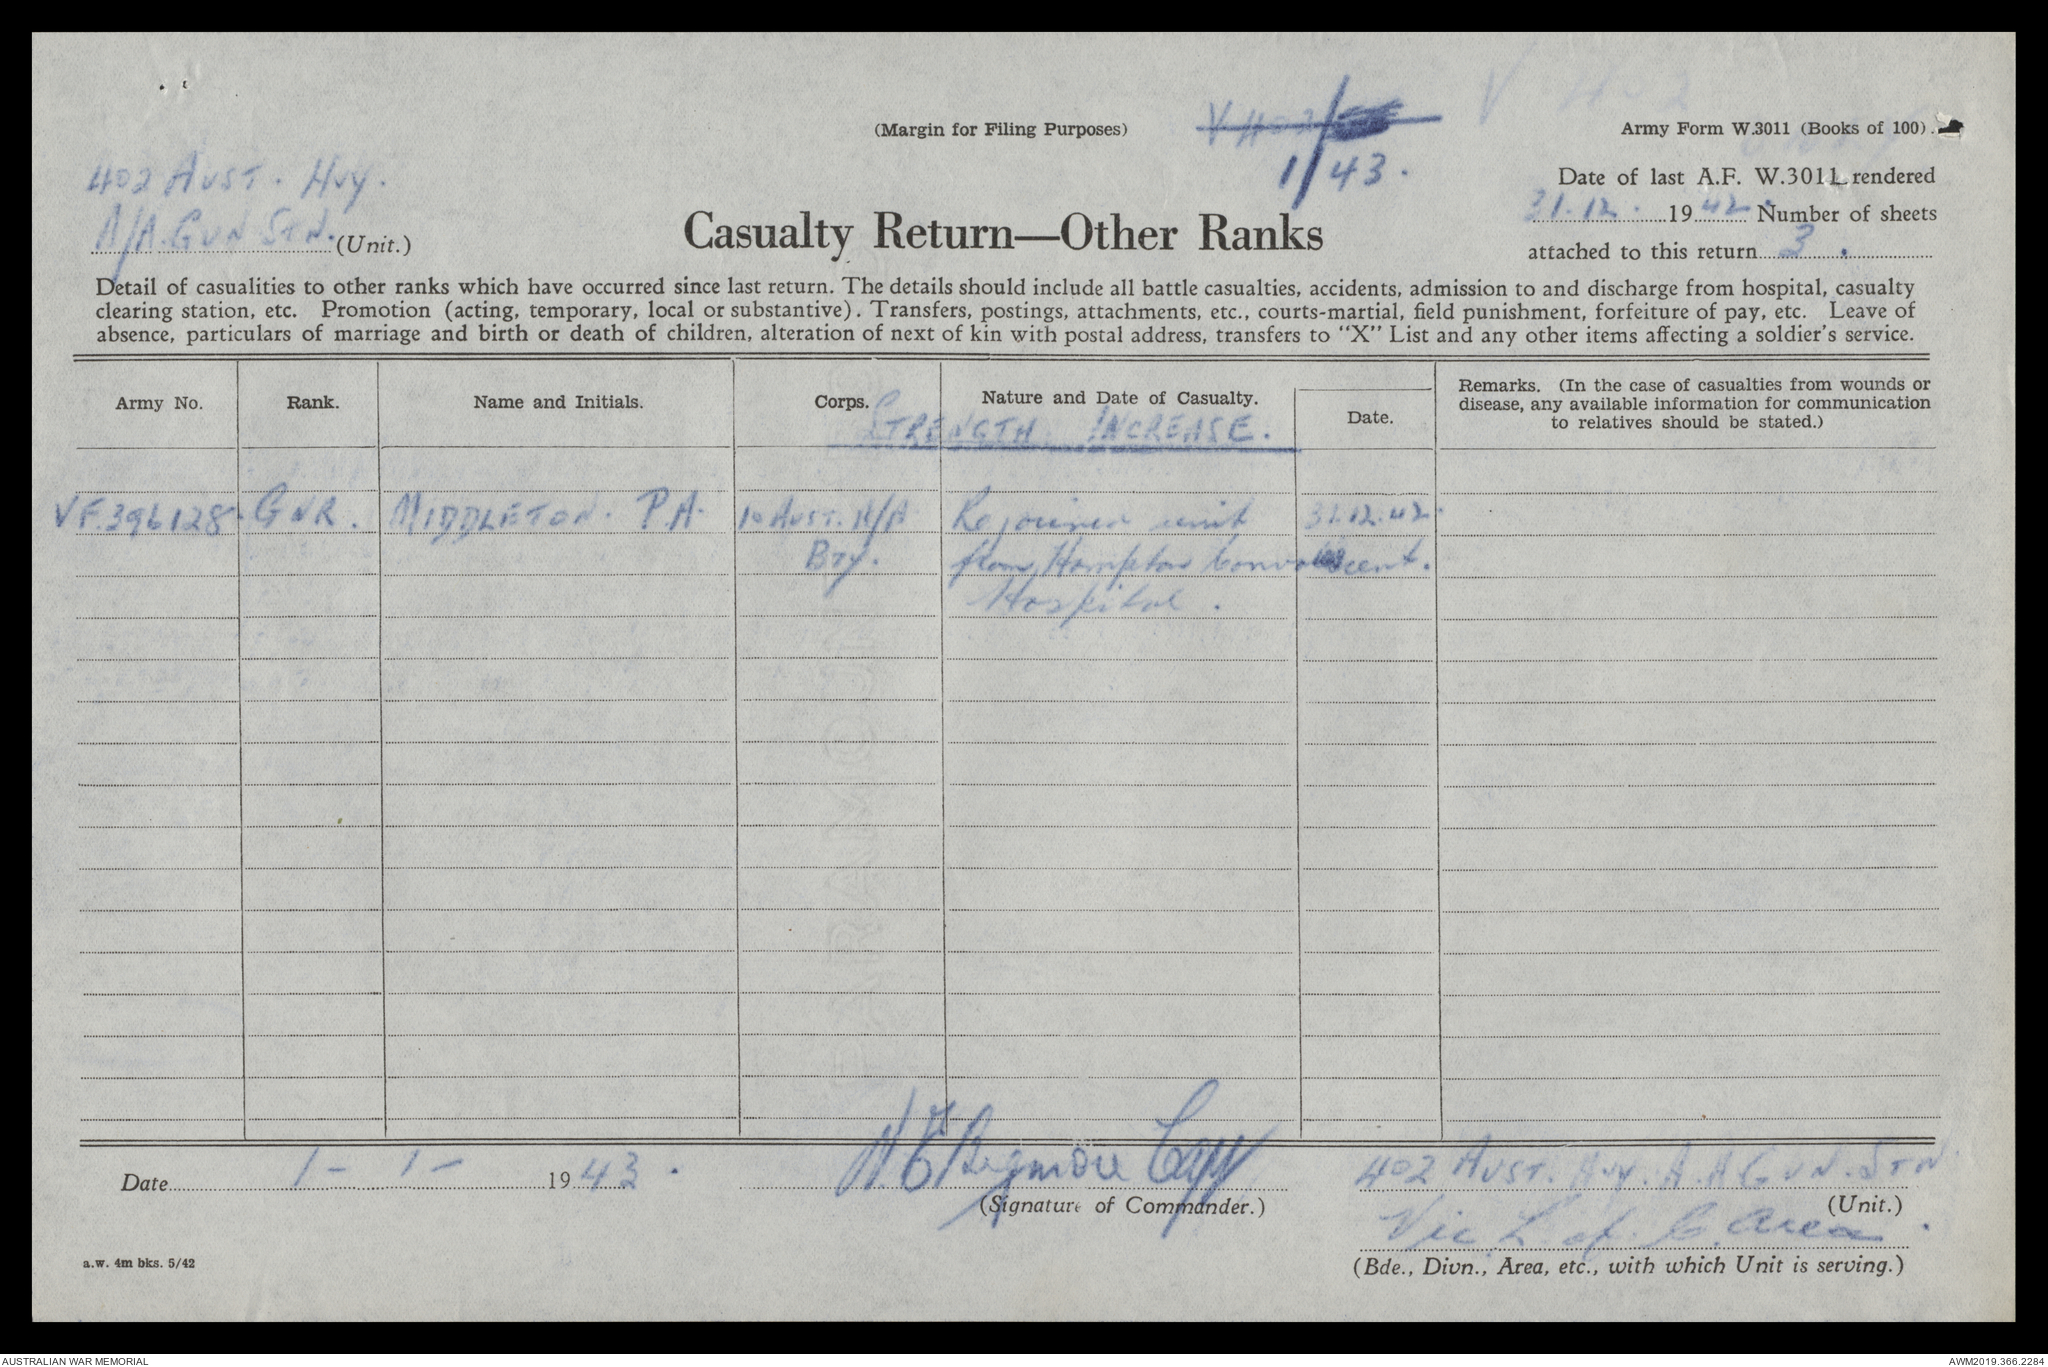 V 402
(Margin for Filing Purposes)
V 402/
1/43.
Army Form W.3011 (Books of 100).
402 AUST. HVY.
A/A. GUN STN. (Unit.)
Casualty Return—Other Ranks
Date of last A.F. W.3011 rendered
31.12. 1942. Number of sheets
attached to this return 3.
Detail of casualities to other ranks which have occurred since last return. The details should include all battle casualties, accidents, admission to and discharge from hospital, casualty
clearing station, etc. Promotion (acting, temporary, local or substantive). Transfers, postings, attachments, etc., courts-martial, field punishment, forfeiture of pay, etc. Leave of
absence, particulars of marriage and birth or death of children, alteration of next of kin with postal address, transfers to "X" List and any other items affecting a soldier's service.
Army No. Rank. Name and Initials. Corps. Nature and Date of Casualty. Date. Remarks. (In the case of casualties from wounds or
disease, any available information for communication
to relatives should be stated.)
STRENGTH INCREASE.
VF.396128. GNR. MIDDLETON. P.A. 10 AUST. A/A Rejoined unit 31.12.42.
BTY. from Hampton Convalescent.
Hospital.
Date 1 - 1 - 1943. Capt 402 AUST. HVY. A.A GUN. STN.
(Signature of Commander.) (Unit.)
Vic L. of C. Area.
(Bde., Divn., Area, etc., with which Unit is serving.)
a.w. 4m bks. 5/42
AUSTRALIAN WAR MEMORIAL AWM2019.366.2284